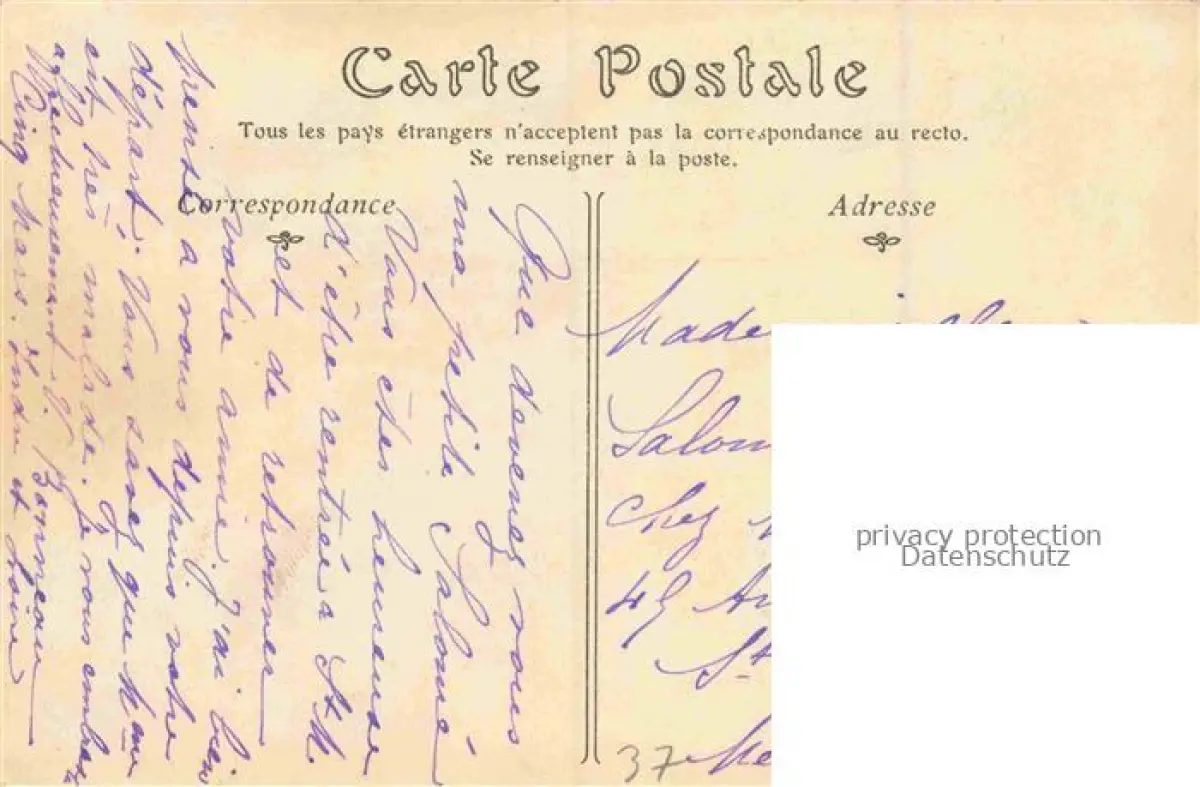 Carte Postale
Tous les pays étrangers n'acceptent pas la correspondance au recto.
Se renseigner à la poste.
Correspondance
Adresse
Que devenez vous
ma petite Salomé
Vous êtes heureuse
d'être rentrée à St M.
et de retrouver
votre amie. J'ai bien
pensé à vous depuis votre
départ. Vous savez que Mme
est très malade. Je vous embrasse
affectueusement
Cinq Mars. Indre et Loire
Chez
49
St
37
privacy protection
Datenschutz